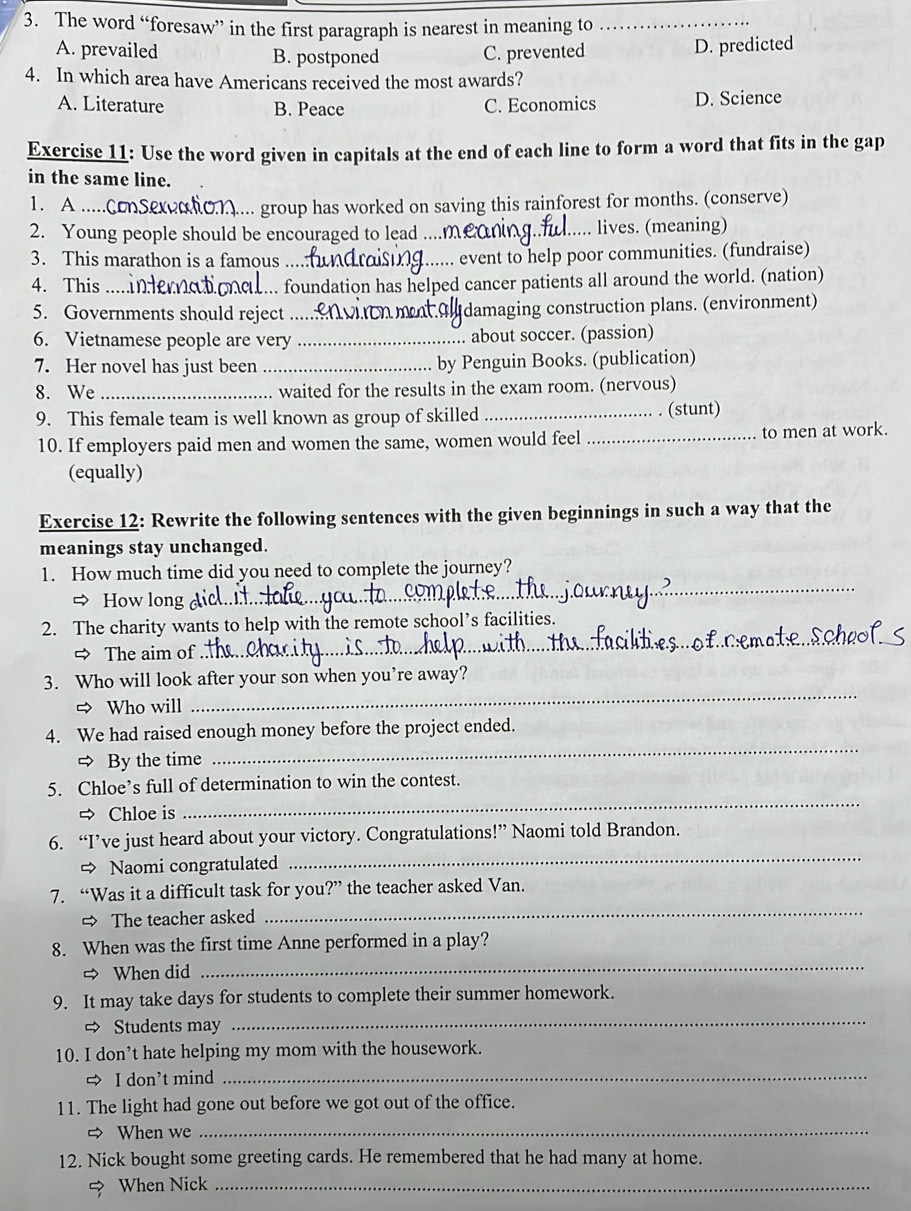 3. The word “foresaw” in the first paragraph is nearest in meaning to ........................
A. prevailed B. postponed C. prevented D. predicted
4. In which area have Americans received the most awards?
A. Literature B. Peace C. Economics D. Science
Exercise 11: Use the word given in capitals at the end of each line to form a word that fits in the gap
in the same line.
1. A .....conservation.... group has worked on saving this rainforest for months. (conserve)
2. Young people should be encouraged to lead ....meaningful..... lives. (meaning)
3. This marathon is a famous ....fundraising...... event to help poor communities. (fundraise)
4. This ....international... foundation has helped cancer patients all around the world. (nation)
5. Governments should reject .....environmentally damaging construction plans. (environment)
6. Vietnamese people are very ................................ about soccer. (passion)
7. Her novel has just been ................................ by Penguin Books. (publication)
8. We ................................ waited for the results in the exam room. (nervous)
9. This female team is well known as group of skilled ................................ . (stunt)
10. If employers paid men and women the same, women would feel ................................ to men at work.
(equally)
Exercise 12: Rewrite the following sentences with the given beginnings in such a way that the
meanings stay unchanged.
1. How much time did you need to complete the journey?
⇨ How long did it take you to complete the journey?
2. The charity wants to help with the remote school’s facilities.
⇨ The aim of the charity is to help with the facilities of remote schools
3. Who will look after your son when you’re away?
⇨ Who will ................................
4. We had raised enough money before the project ended.
⇨ By the time ................................
5. Chloe’s full of determination to win the contest.
⇨ Chloe is ................................
6. “I’ve just heard about your victory. Congratulations!” Naomi told Brandon.
⇨ Naomi congratulated ................................
7. “Was it a difficult task for you?” the teacher asked Van.
⇨ The teacher asked ................................
8. When was the first time Anne performed in a play?
⇨ When did ................................
9. It may take days for students to complete their summer homework.
⇨ Students may ................................
10. I don’t hate helping my mom with the housework.
⇨ I don’t mind ................................
11. The light had gone out before we got out of the office.
⇨ When we ................................
12. Nick bought some greeting cards. He remembered that he had many at home.
⇨ When Nick ................................